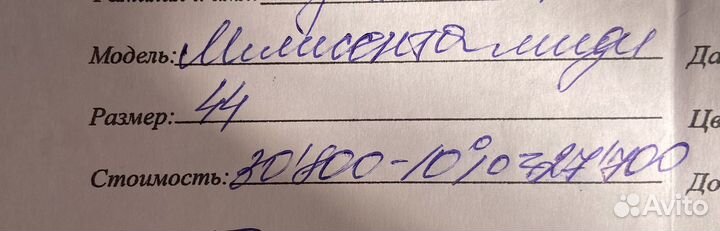 Модель: Милисента миди Да
Размер: 44 Цв
Стоимость: 30'800-10%=27'700 До
Avito